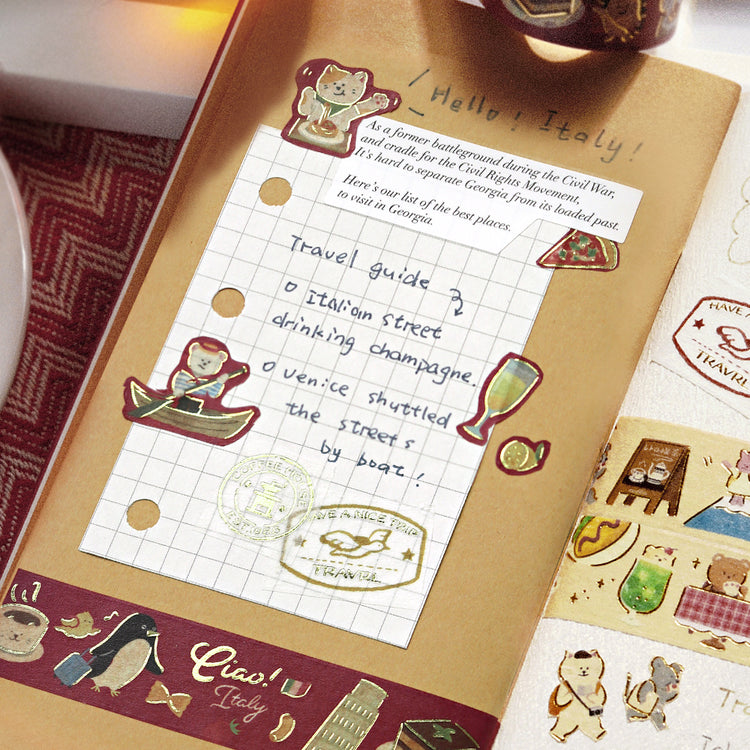 Hello! Italy!
As a former battleground during the Civil War,
and cradle for the Civil Rights Movement,
It's hard to separate Georgia from its loaded past.
Here's our list of the best places.
to visit in Georgia.
Travel guide
o Italian street
drinking champagne.
o venice shuttled
the streets
by boat!
HAVE A NICE TRIP
TRAVEL
Ciao!
Italy
HAVE A
TRAVEL